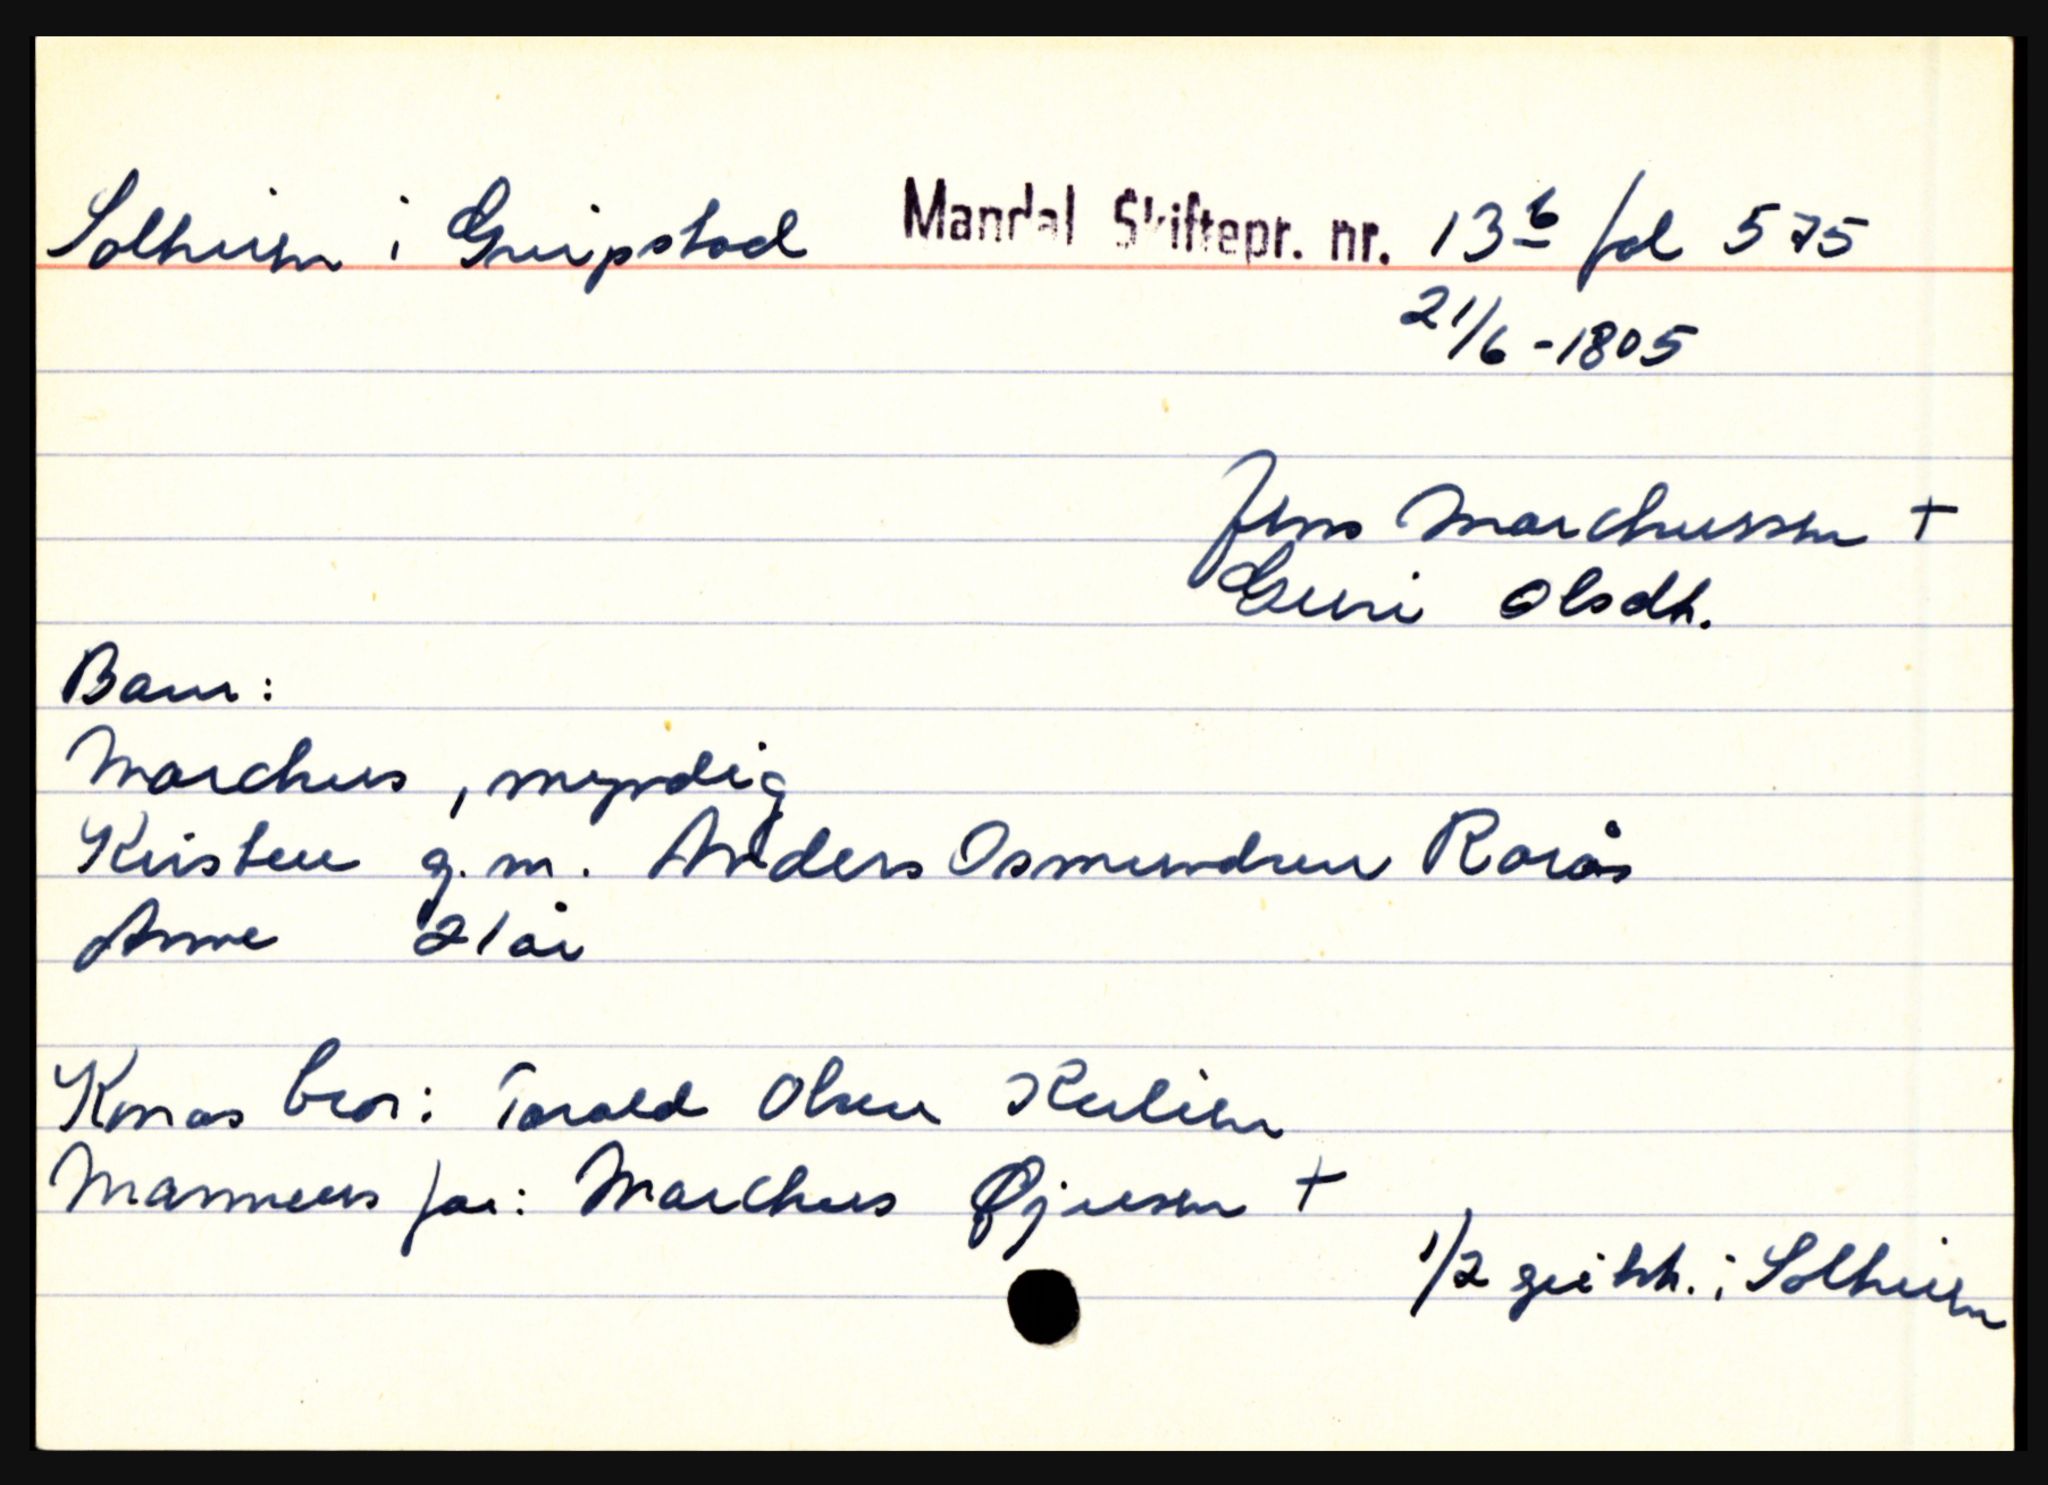 Solheim i Greipstad Mandal Skiftepr. nr. 13b fol 575
21/6 - 1805
Jens Marchussen +
Guri Olsdtr.
Barn:
Marchus, myndig
Kirsten g.m. Anders Osmundsen Rorås
Anne 21 år
Konas bror: Torald Olsen Kulien
Mannens far: Marchus Øjusen +
1/2 gr i hh. i Solheim